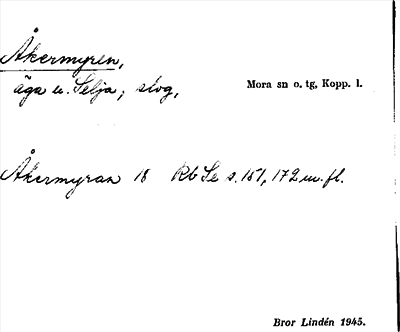 Åkermyren,
äga u. Selja; skog,
Mora sn o. tg, Kopp. l.
Åkermyran 18 Rb Se s. 151, 172 m. fl.
Bror Lindén 1945.